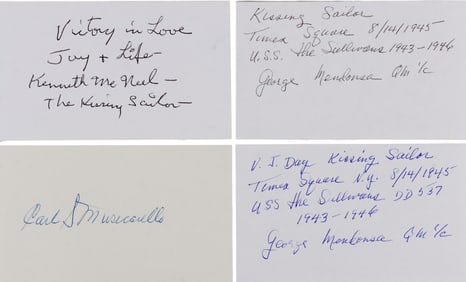 Victory in Love
Joy + Life
Kenneth McNeel -
The Kissing Sailor -
Kissing Sailor
Times Square 8/14/1945
U.S.S. The Sullivans 1943-1946
George Mendonsa QM 1/c
Carl S Muscarello
V. J. Day Kissing Sailor
Times Square N.Y. 8/14/1945
USS The Sullivans DD 537
1943-1946
George Mendonsa QM 1/c